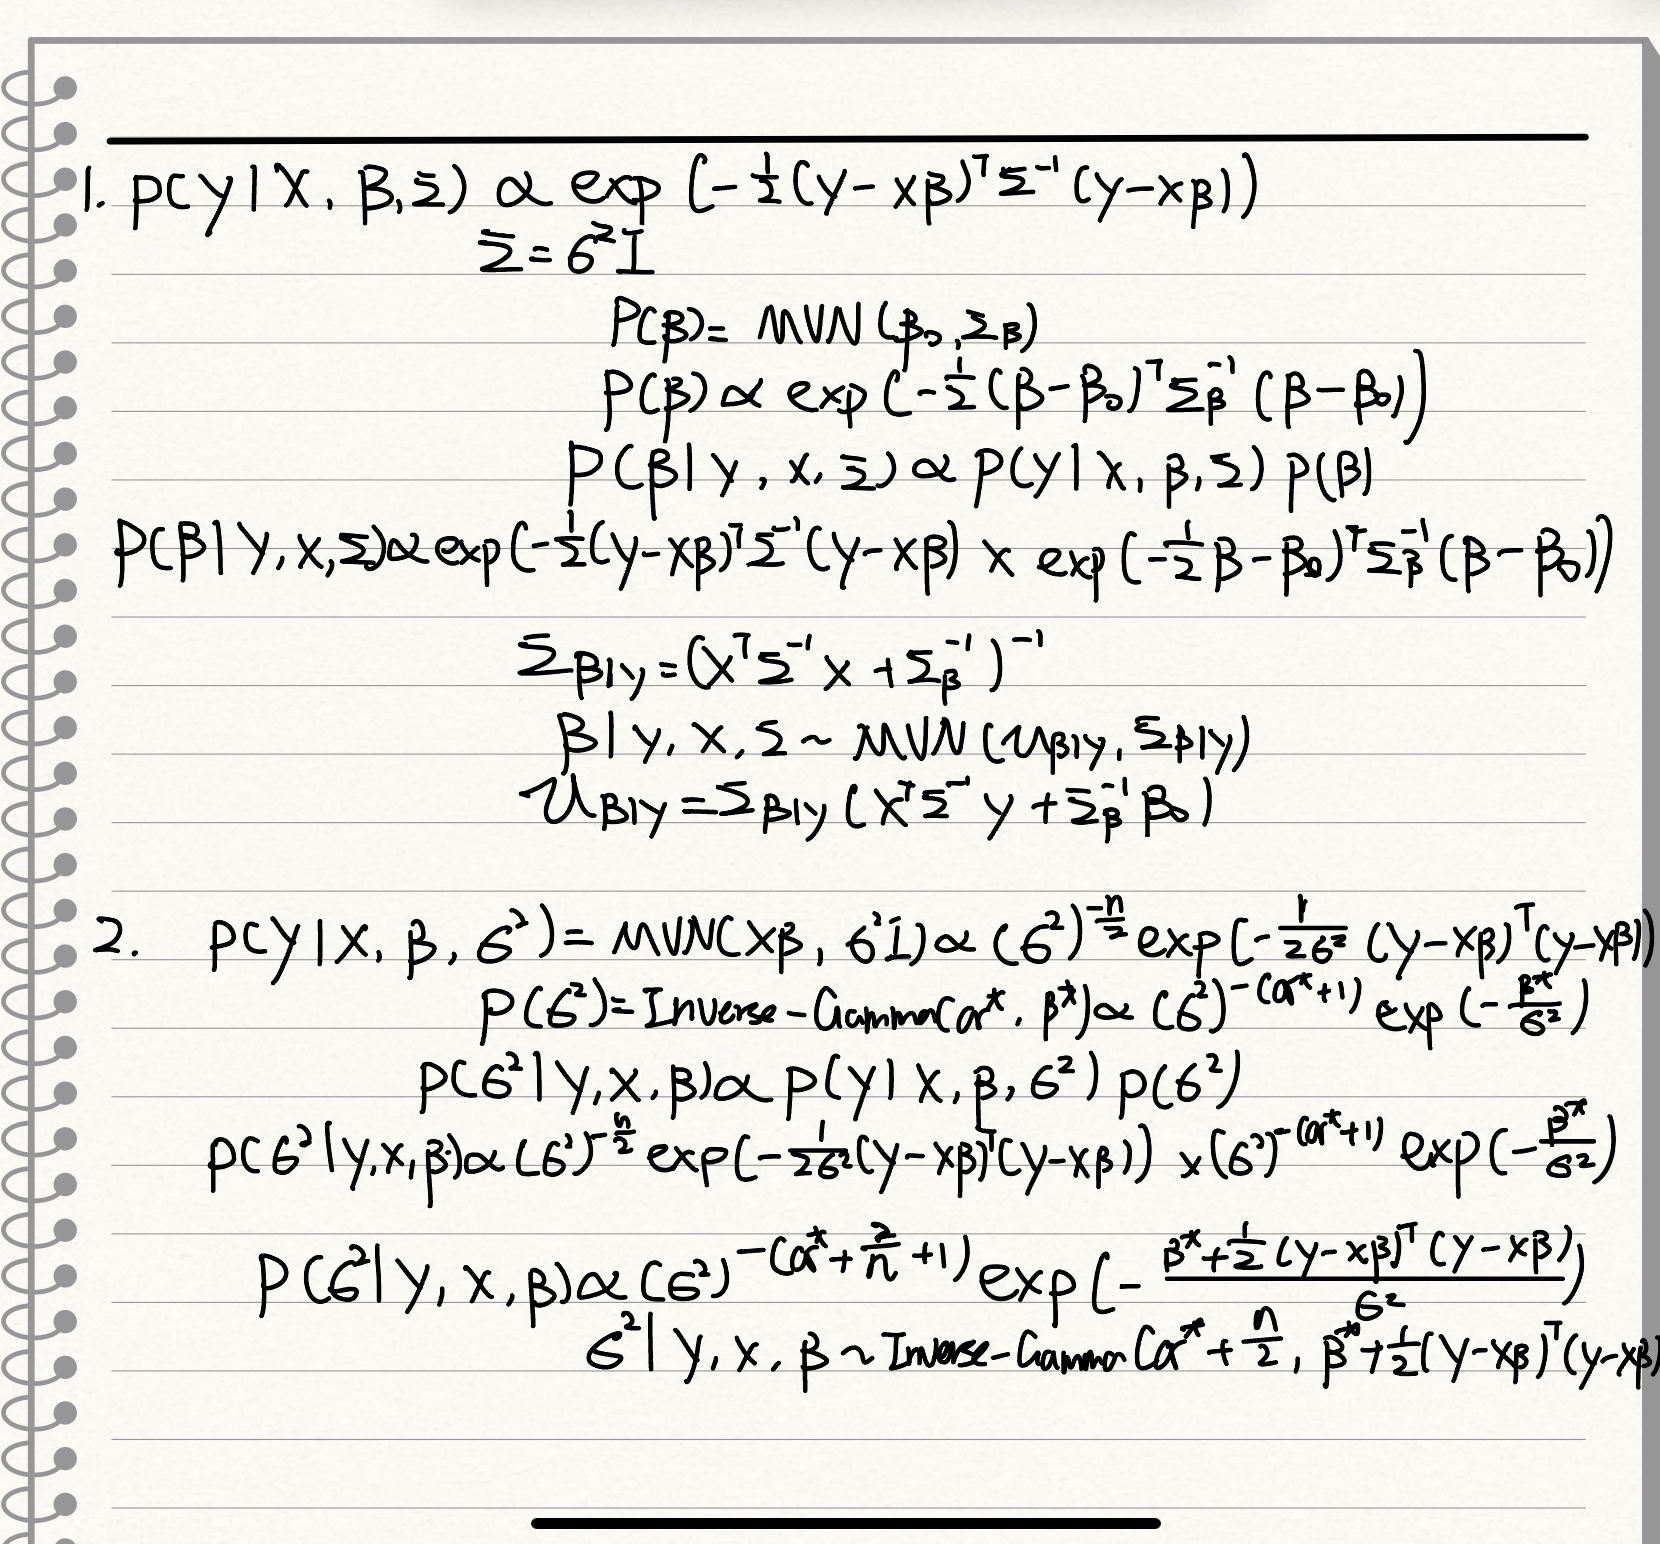 1. P(Y|X, β, Σ) ∝ exp (-1/2 (Y-Xβ)^T Σ^-1 (Y-Xβ))
Σ = 6^2 I
P(β) = MVN (β_0, Σ_β)
P(β) ∝ exp (-1/2 (β-β_0)^T Σ_β^-1 (β-β_0))
P(β|Y, X, Σ) ∝ P(Y|X, β, Σ) P(β)
P(β|Y, X, Σ) ∝ exp(-1/2 (Y-Xβ)^T Σ^-1 (Y-Xβ) × exp (-1/2 β-β_0)^T Σ_β^-1 (β-β_0))
Σ_β|y = (X^T Σ^-1 X + Σ_β^-1)^-1
β|Y, X, Σ ~ MVN (μ_β|y, Σ_β|y)
μ_β|y = Σ_β|y (X^T Σ^- y + Σ_β^-1 β_0)
2. P(Y|X, β, 6^2) = MVN(Xβ, 6^2 I) ∝ (6^2)^-n/2 exp(-1/26^2 (Y-Xβ)^T (Y-Xβ))
P(6^2) = Inverse-Gamma(α^*, β^*) ∝ (6^2)^-(α^*+1) exp (-β^*/6^2)
P(6^2|Y, X, β) ∝ P(Y|X, β, 6^2) P(6^2)
P(6^2|Y, X, β) ∝ (6^2)^-n/2 exp(-1/26^2 (Y-Xβ)^T (Y-Xβ)) × (6^2)^-(α^*+1) exp(-β^*/6^2)
P(6^2|Y, X, β) ∝ (6^2)^-(α^*+2/n+1) exp (- β^*+1/2 (Y-Xβ)^T (Y-Xβ) / 6^2)
6^2|Y, X, β ~ Inverse-Gamma (α^*+n/2, β^*+1/2 (Y-Xβ)^T (Y-Xβ)